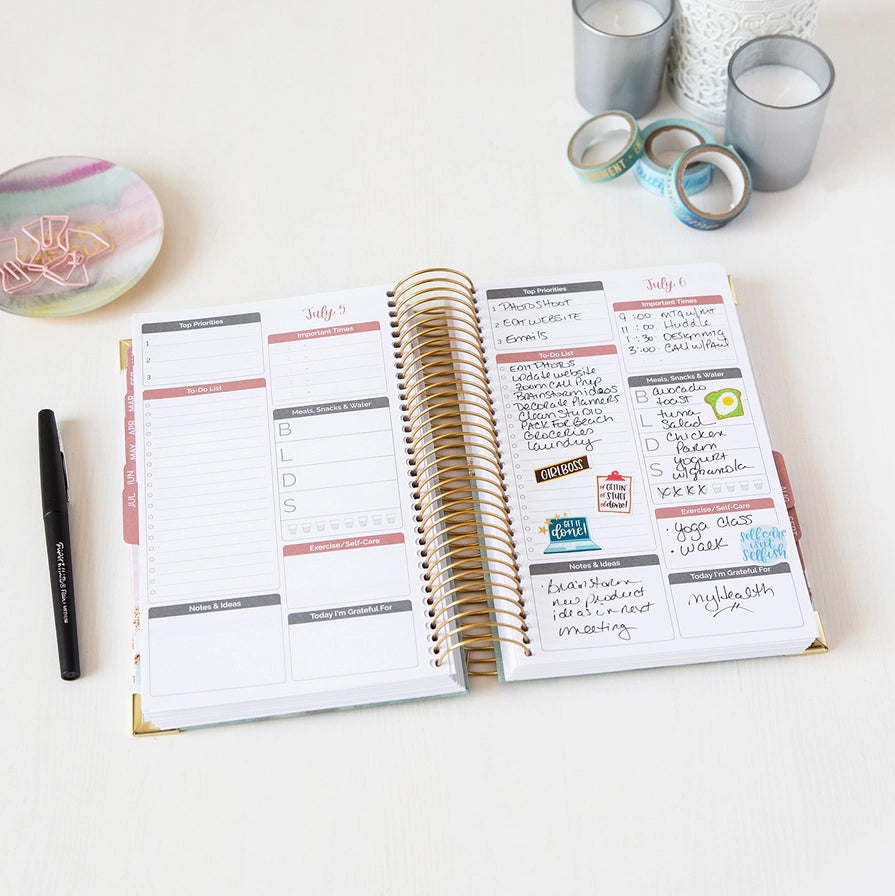 July 5
Top Priorities
1
2
3
Important Times
To-Do List
Meals, Snacks & Water
B
L
D
S
Exercise/Self-Care
Notes & Ideas
Today I'm Grateful For
MAR
APR
MAY
JUN
JUL
July 6
Top Priorities
1 PHOTOSHOOT
2 EDIT WEBSITE
3 Emails
Important Times
9:00 MTG w/MT
11:00 Huddle
1:30 DESIGN MTG
3:00 CALL w/Paul
To-Do List
EDIT PHOTOS
update website
Zoom Call Prep
Brainstorm ideas
Decorate Planners
Clean STUDIO
PACK For Beach
Groceries
Laundry
GIRL BOSS
GETTIN'
STUFF
done!
GET IT
done!
Meals, Snacks & Water
B avocado
toast
L tuna
Salad
D Chicken
Parm
S Yogurt
w/granola
XXXX
Exercise/Self-Care
• Yoga Class
• Walk
Self care
not
Selfish
Notes & Ideas
• Brainstorm
new product
ideas in next
meeting
Today I'm Grateful For
my Health
AUG
SEP